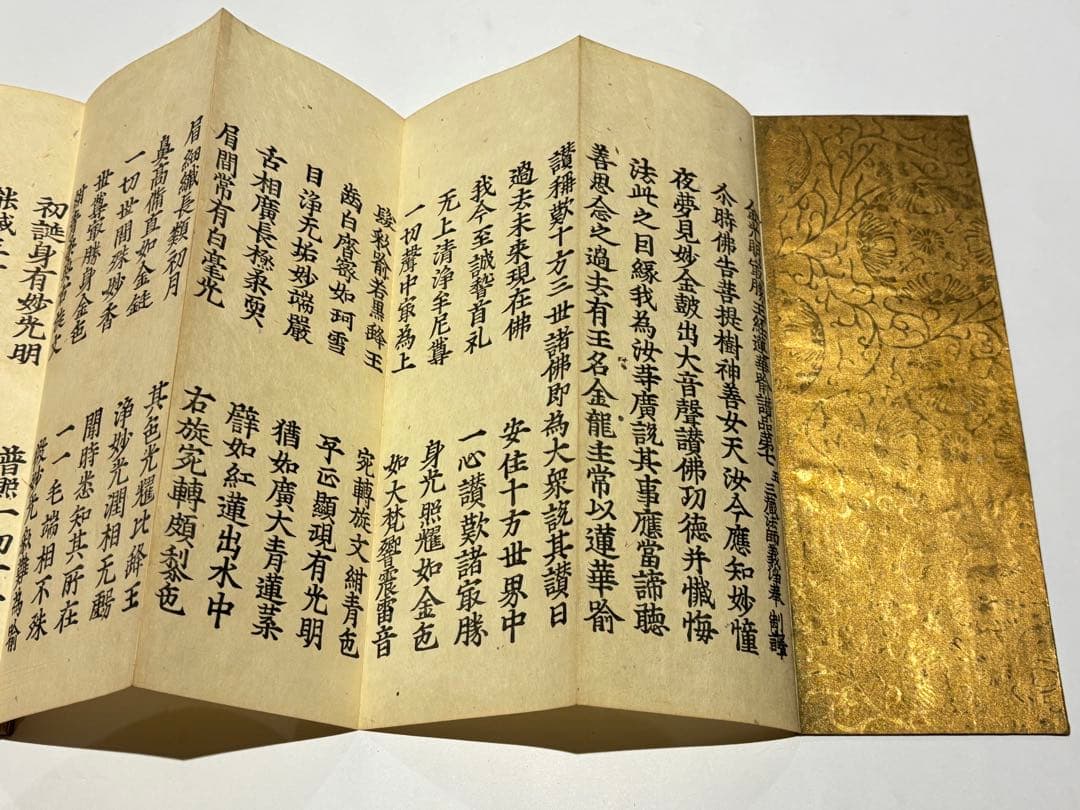 金光明冣勝王經蓮華喻讚品苐七 三藏法師義淨奉 制譯
尒時佛告菩提樹神善女天汝今應知妙幢
夜夢見妙金皷出大音聲讚佛功德并懺悔
法此之因緣我為汝等廣說其事應當諦聽
善思念之過去有王名金龍主常以蓮華喻
讚稱歎十方三世諸佛即為大衆說其讚曰
過去未來現在佛 安住十方世界中
我今至誠稽首礼 一心讚歎諸冣勝
无上清淨牟尼尊 身光照耀如金色
一切聲中冣為上 如大梵響震雷音
髮彩喻若黑蜂王 宛轉旋文紺青色
齒白齊密如珂雪 平正顯現有光明
目淨无垢妙端嚴 猶如廣大青蓮葉
舌相廣長極柔耎 譬如紅蓮出水中
眉間常有白毫光 右旋宛轉頗梨色
眉細纖長類初月 其色光耀比蜂王
鼻高脩直如金鋌 淨妙光潤相无虧
一切世間殊妙香 聞時悉知其所在
世尊冣勝身金色 一一毛端相不殊
右旋文 微妙光彩難為喻
初誕身有妙光明 普照一切十
能滅三